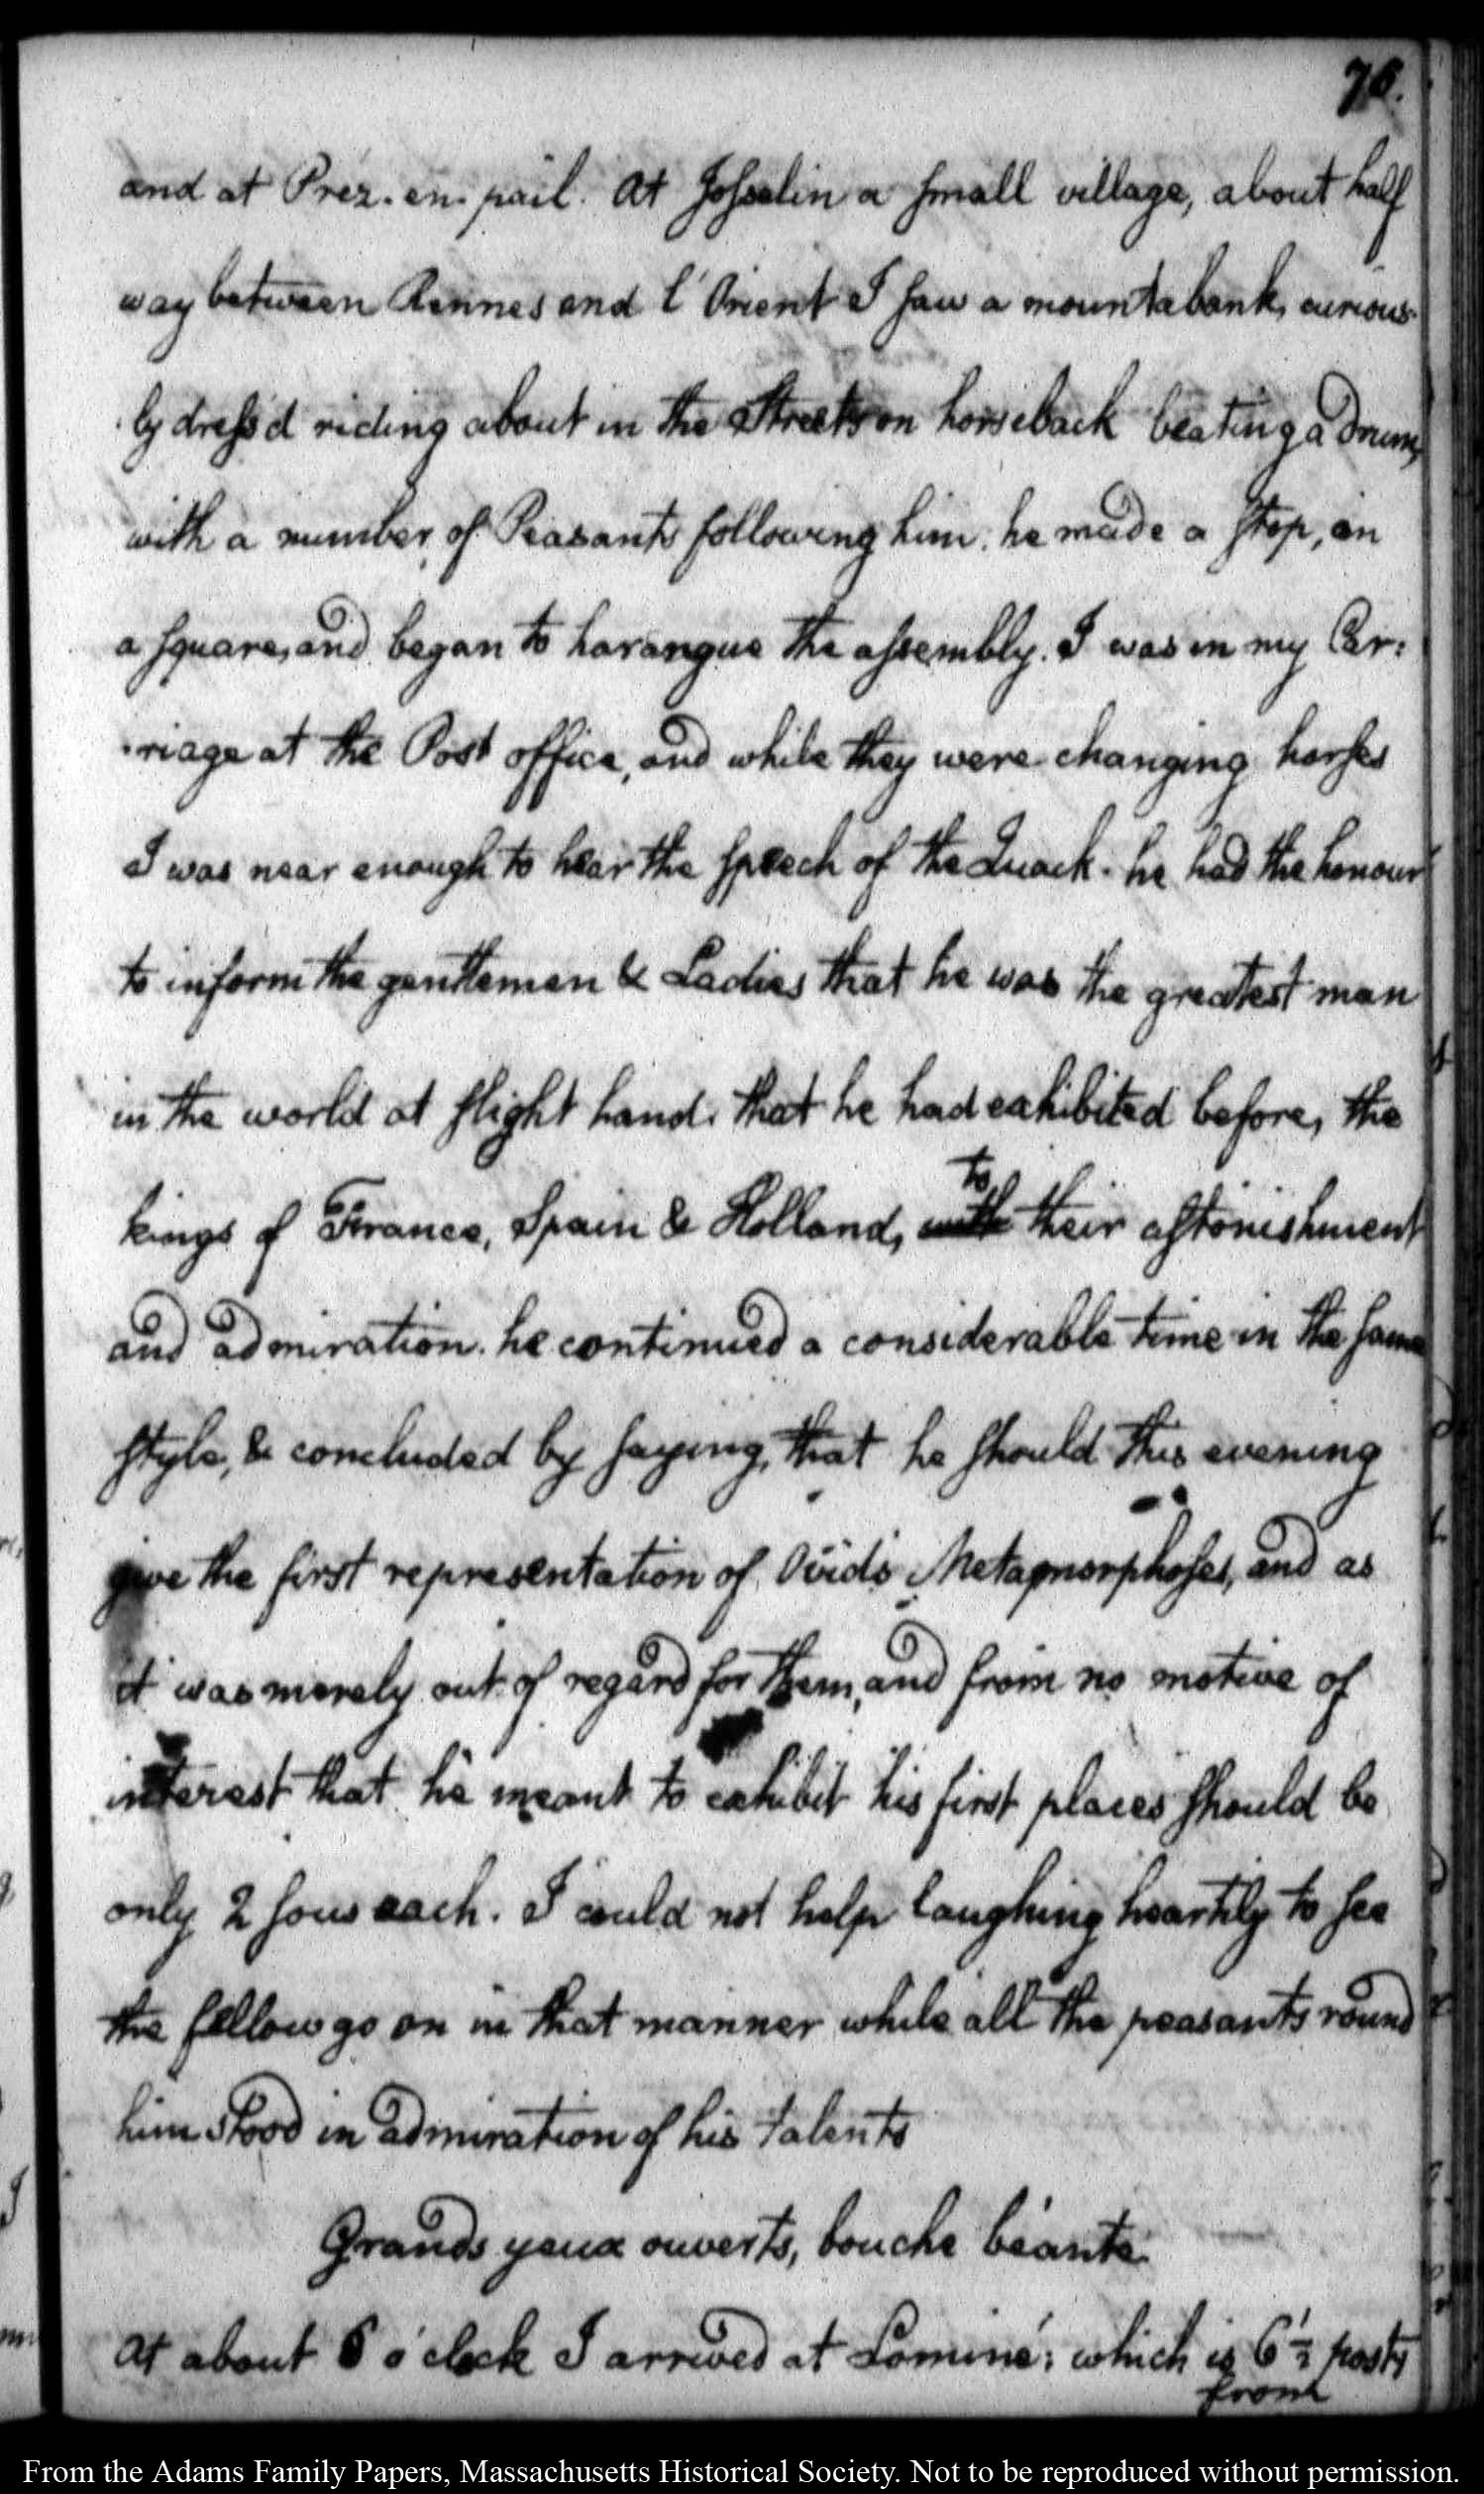 76.
and at Prez. en. pail. At Josselin a small village, about half
way between Rennes and l'Orient I saw a mountebank, curious-
ly dress'd riding about in the Streets on horseback beating a Drum,
with a number of Peasants following him. he made a stop, in
a square, and began to harangue the assembly. I was in my Car:
:riage at the Post office, and while they were changing horses
I was near enough to hear the speech of the Quack. he had the honour
to inform the gentlemen & Ladies that he was the greatest man
in the world at slight hand. that he had exhibited before, the
kings of France, Spain & Holland, with to their astonishment
and admiration. he continued a considerable time in the same
style, & concluded by saying, that he should this evening
give the first representation of Ovid's Metamorphoses, and as
it was merely out of regard for them, and from no motive of
interest that he meant to exhibit his first places should be
only 2 sous each. I could not help laughing heartily to see
the fellow go on in that manner while all the peasants round
him stood in admiration of his talents
Grands yeux ouverts, bouche béante.
At about 6 o'clock I arrived at Lominé: which is 6 1/2 posts
from
From the Adams Family Papers, Massachusetts Historical Society. Not to be reproduced without permission.